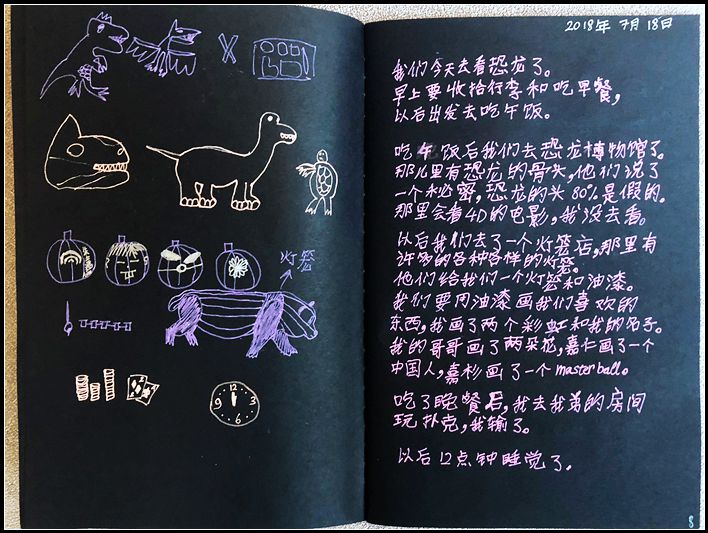 灯笼
12
3
6
9
2018年 7月 18日
我们今天去看恐龙了。
早上要收拾行李和吃早餐,
以后出发去吃午饭。
吃午饭后我们去恐龙博物馆了。
那儿里有恐龙的骨头,他们说了
一个秘密,恐龙的头 80% 是假的。
那里会看4D的电影,我没去看。
以后我们去了一个灯笼店,那里有
许多的各种各样的灯笼。
他们给我们一个灯笼和油漆。
我们要用油漆画我们喜欢的
东西,我画了两个彩虹和我的名字。
我的哥哥画了两朵花,嘉仁画了一个
中国人,嘉杉画了一个 masterball。
吃了晚餐后,我去我弟的房间
玩扑克,我输了。
以后 12点钟睡觉了。
8